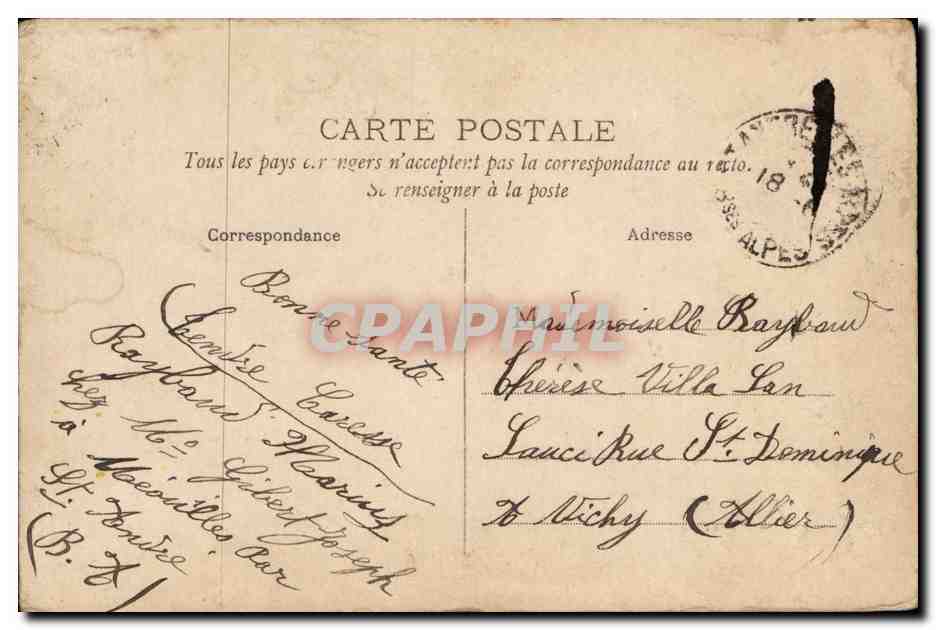 CARTE POSTALE
Tous les pays étrangers n'acceptent pas la correspondance au recto.
Se renseigner à la poste
Correspondance
Adresse
Bonne Santé
(Tendre Caresse
Raybaud Marius
chez Mr Gibert Joseph
à Méouilles Par
St. André
(B. A)
Mademoiselle Raybaud
Thérèse Villa San
Souci Rue St. Dominique
A Vichy (Allier)
ST ANDRE LES ALPES
18
BSES ALPES
CPAPHIL